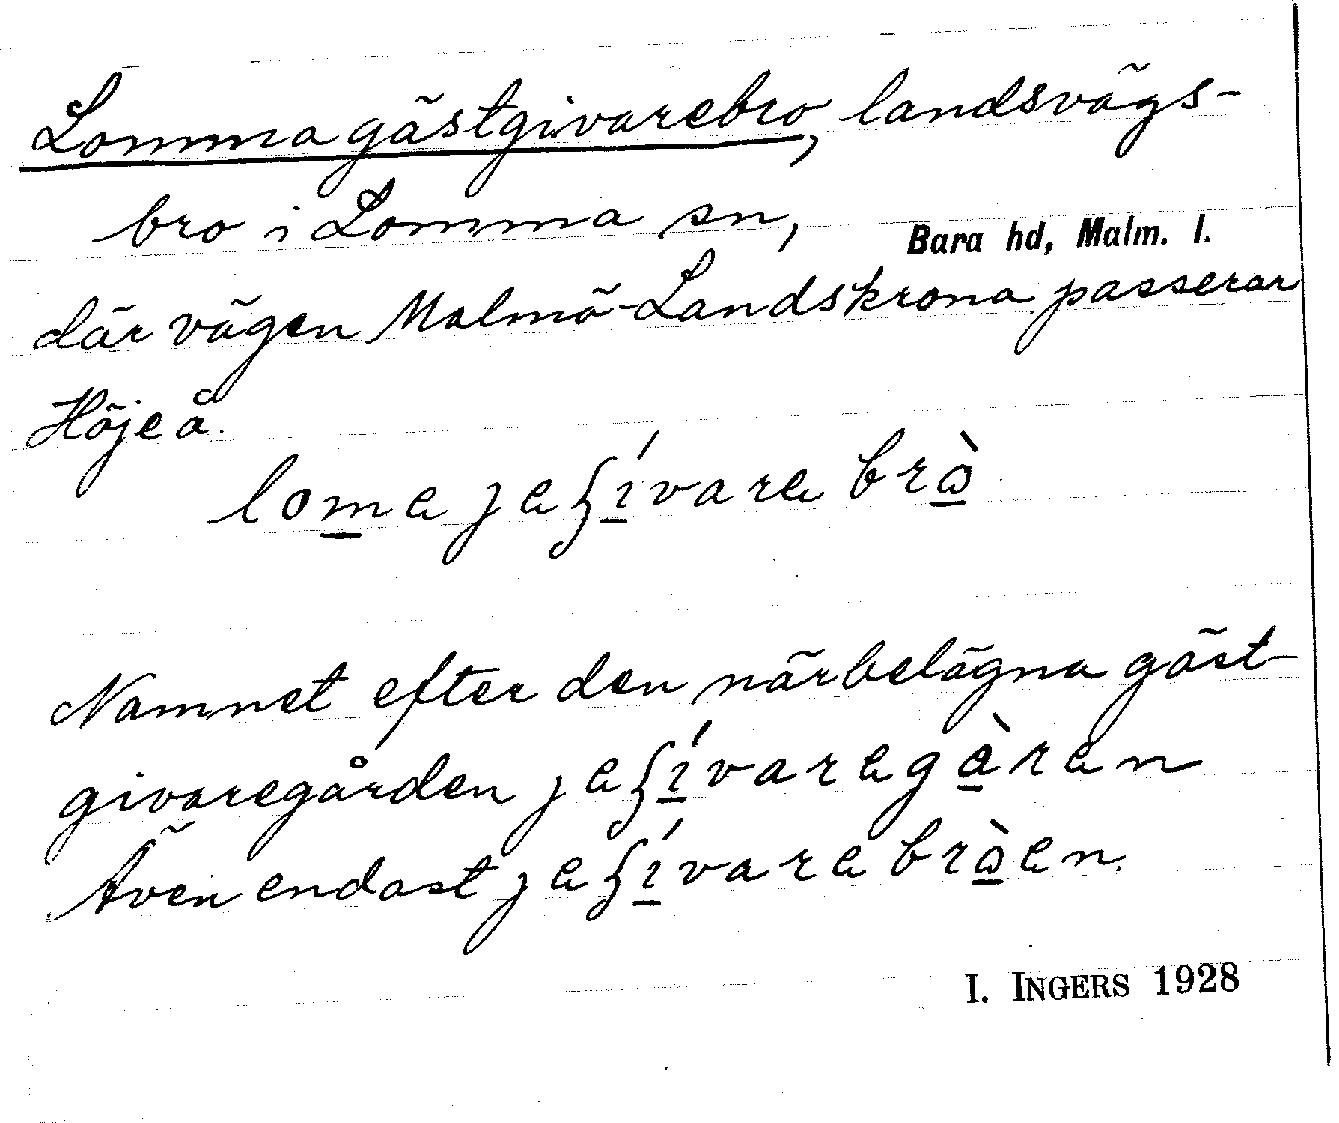 Lomma gästgivarebro, landsvägs-
bro i Lomma sn, Bara hd, Malm. l.
där vägen Malmö-Landskrona passerar
Höje å.
loma jaʃívara brò
Namnet efter den närbelägna gäst-
givaregården jaʃívaragàran
Även endast jaʃívara bròen.
I. INGERS 1928